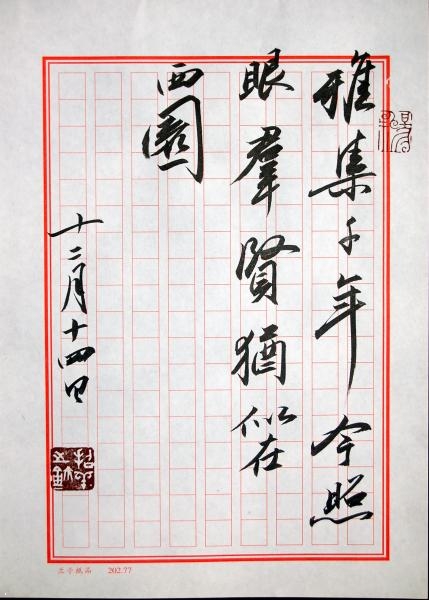 雅集千年今照
眼羣賢猶似在
西園
十二月十四日
202.77